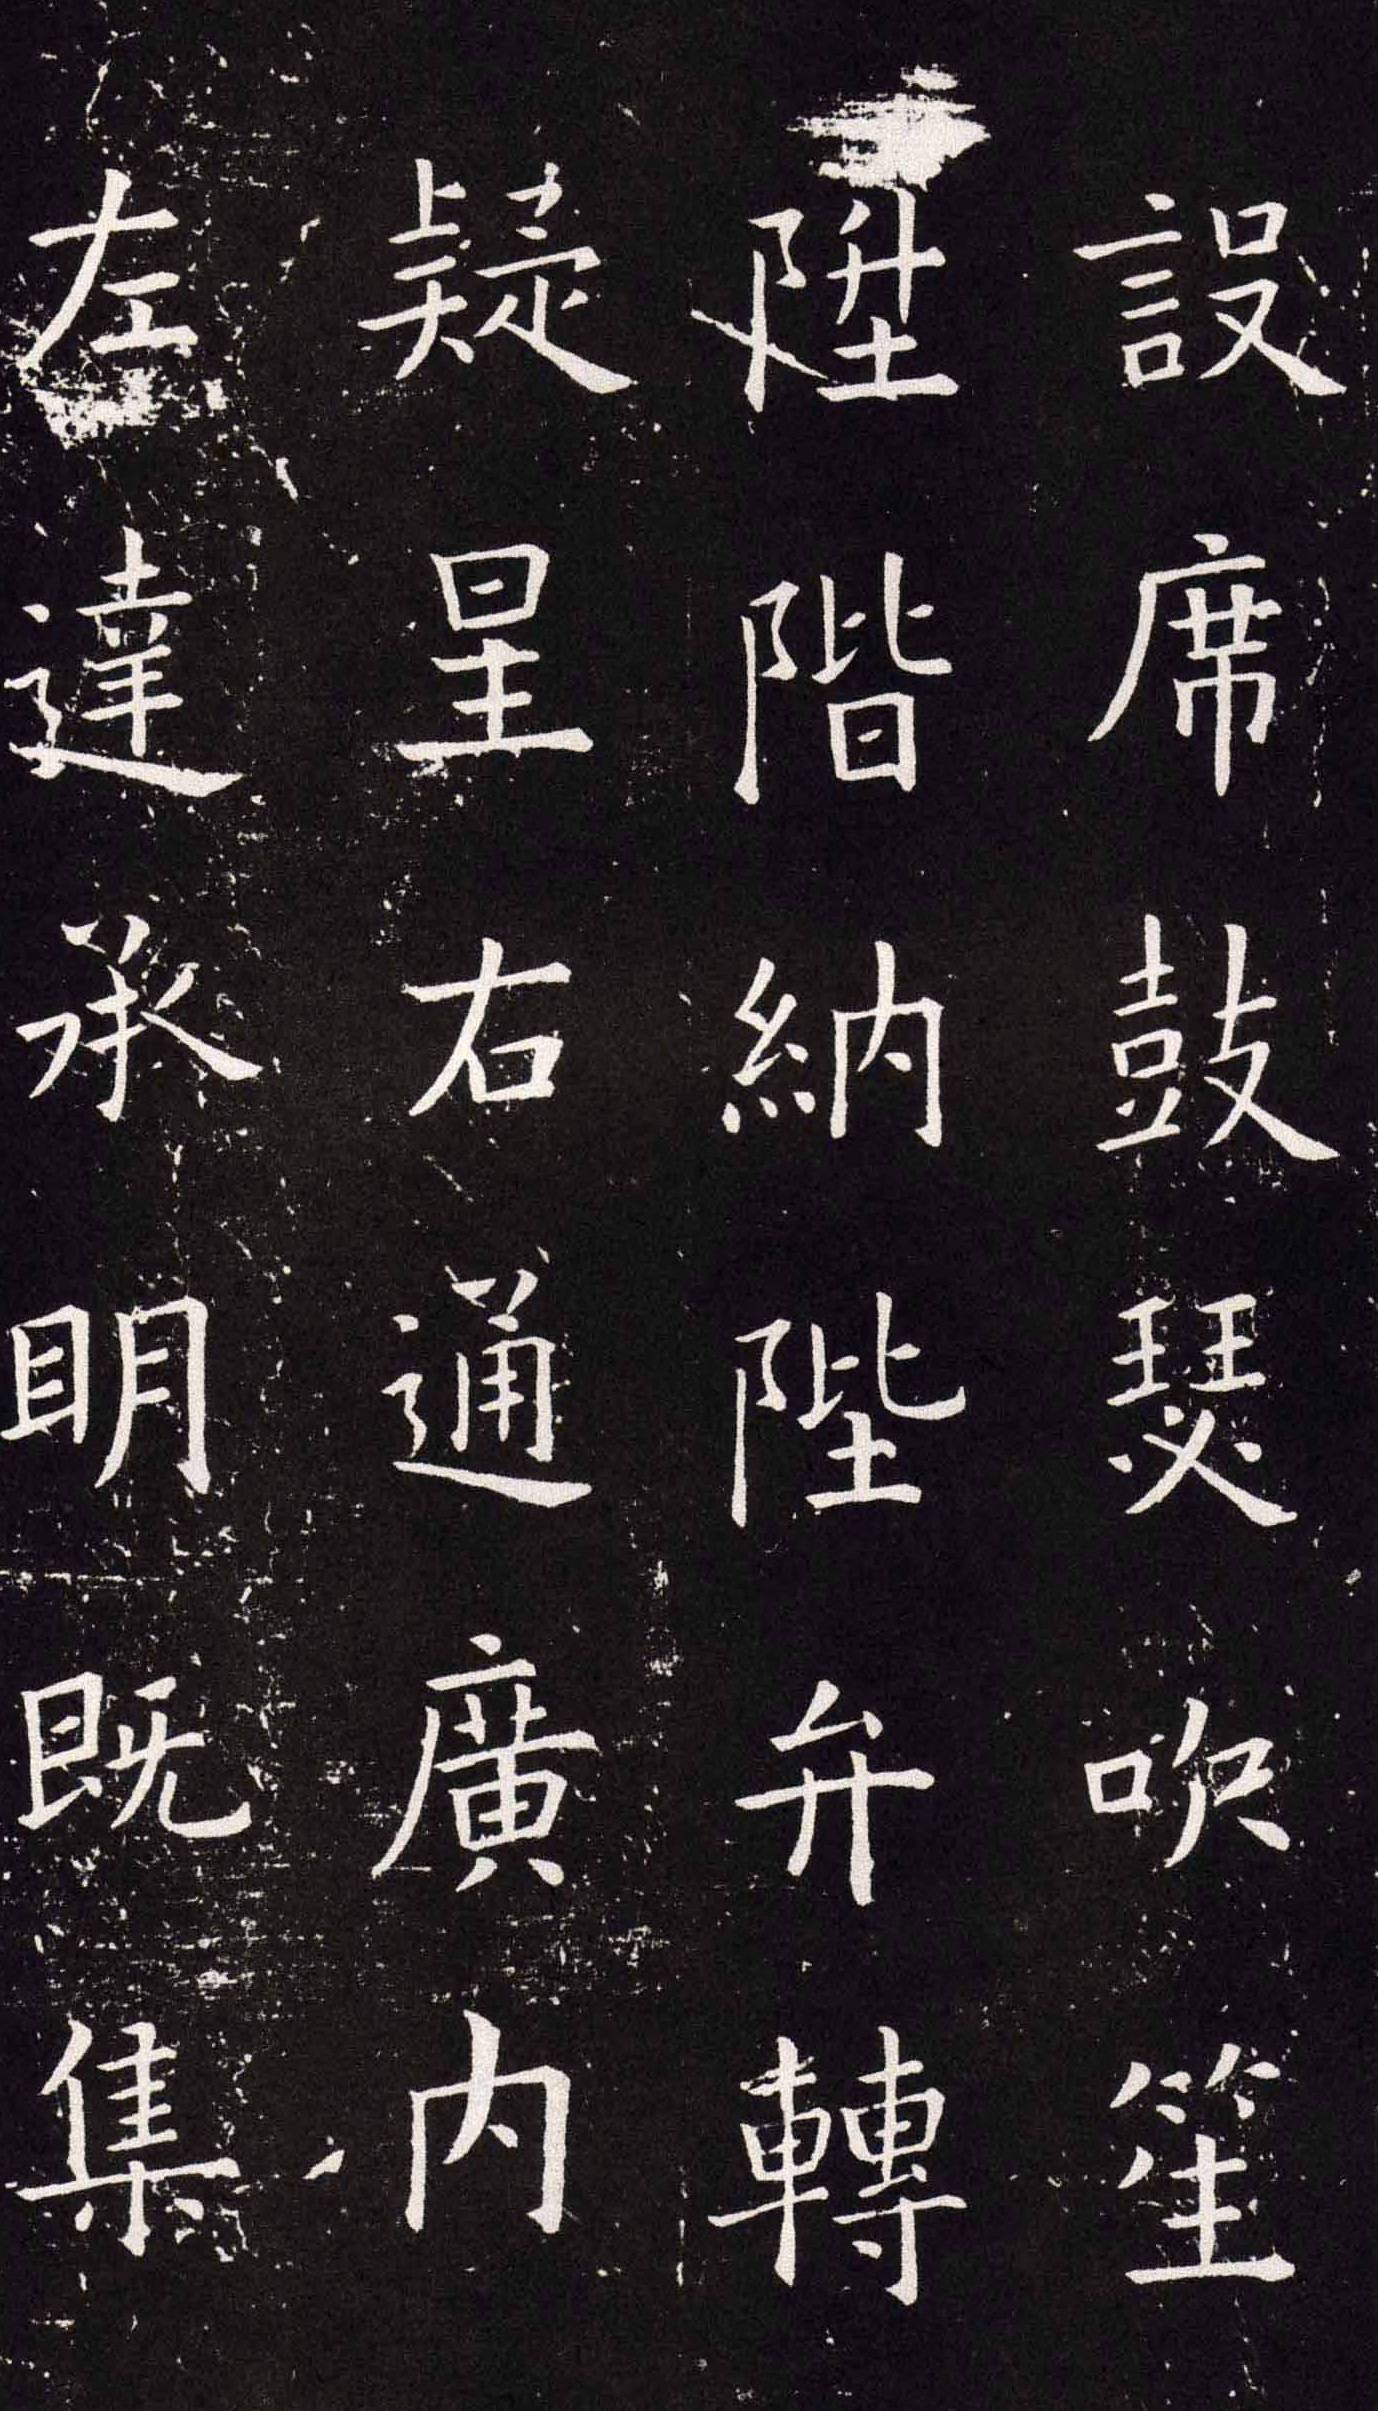 設席鼓瑟吹笙
陞階納陛弁轉
疑星右通廣內
左達承明既集